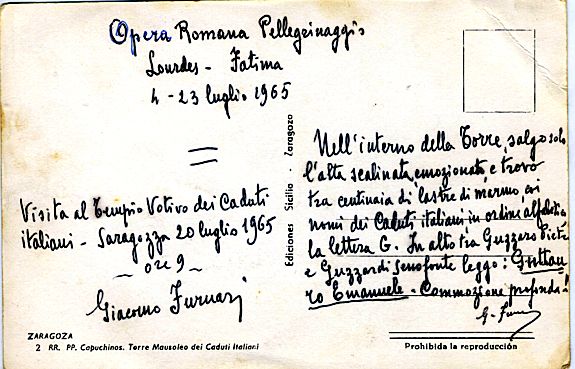 Opera Romana Pellegrinaggi
Lourdes - Fatima
4 - 23 luglio 1965
Visita al Tempio Votivo dei Caduti
italiani - Saragozza 20 luglio 1965
- ore 9 -
Giacomo Furnari
Ediciones Sicilia - Zaragoza
Nell'interno della Torre, salgo solo
l'alta scalinata, emozionato, e trovo
tra centinaia di lastre di marmo, coi
nomi dei Caduti italiani, in ordine alfabetico
la lettera G. In alto tra Guzzaro Pietro
e Guzzardi Senofonte leggo: Guttau
ro Emanuele - Commozione profonda!
G. Furnari
ZARAGOZA
2 RR. PP. Capuchinos. Torre Mausoleo dei Caduti Italiani
Prohibida la reproducción